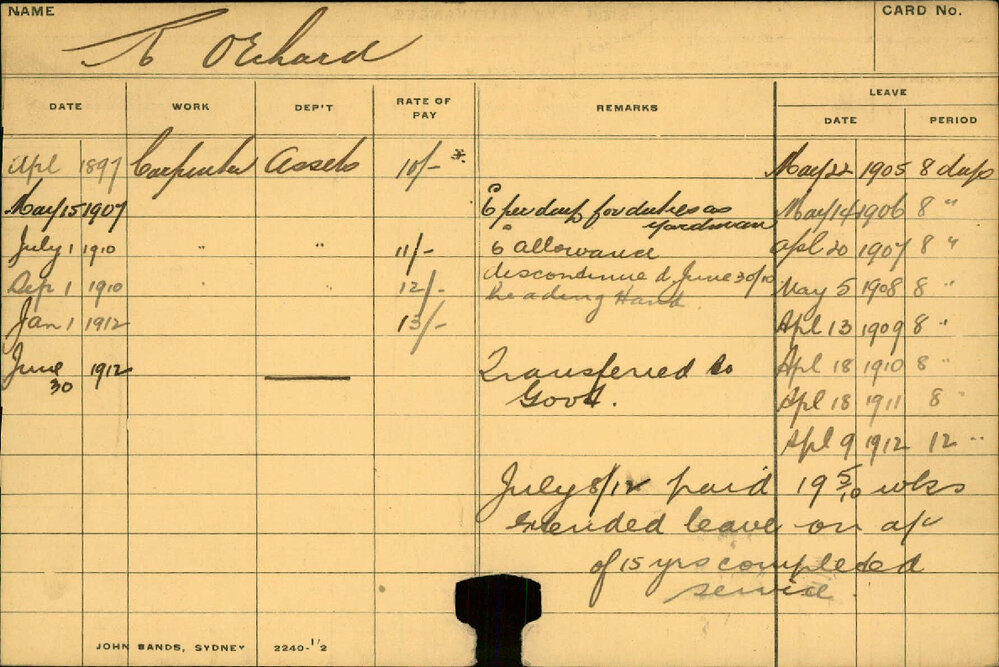 NAME
T Orchard
CARD No.
DATE WORK DEP'T RATE OF PAY REMARKS LEAVE
DATE PERIOD
Apl 1897 Carpenter Assets 10/- * May 22 1905 8 days
May 15 1907 6 per day for duties as yardman May 14 1906 8 "
July 1 1910 " " 11/- 6 allowance Apl 20 1907 8 "
discontinued June 30/10
Sep 1 1910 " " 12/- Leading Hand. May 5 1908 8 "
Jan 1 1912 13/- Apl 13 1909 8 "
June 30 1912 Transferred to Apl 18 1910 8 "
Govt. Apl 18 1911 8 "
Apl 9 1912 12 "
July 8/12 paid 19 5/10 wks
extended leave on a/c
of 15 yrs completed
service.
JOHN SANDS, SYDNEY 2240-1/2